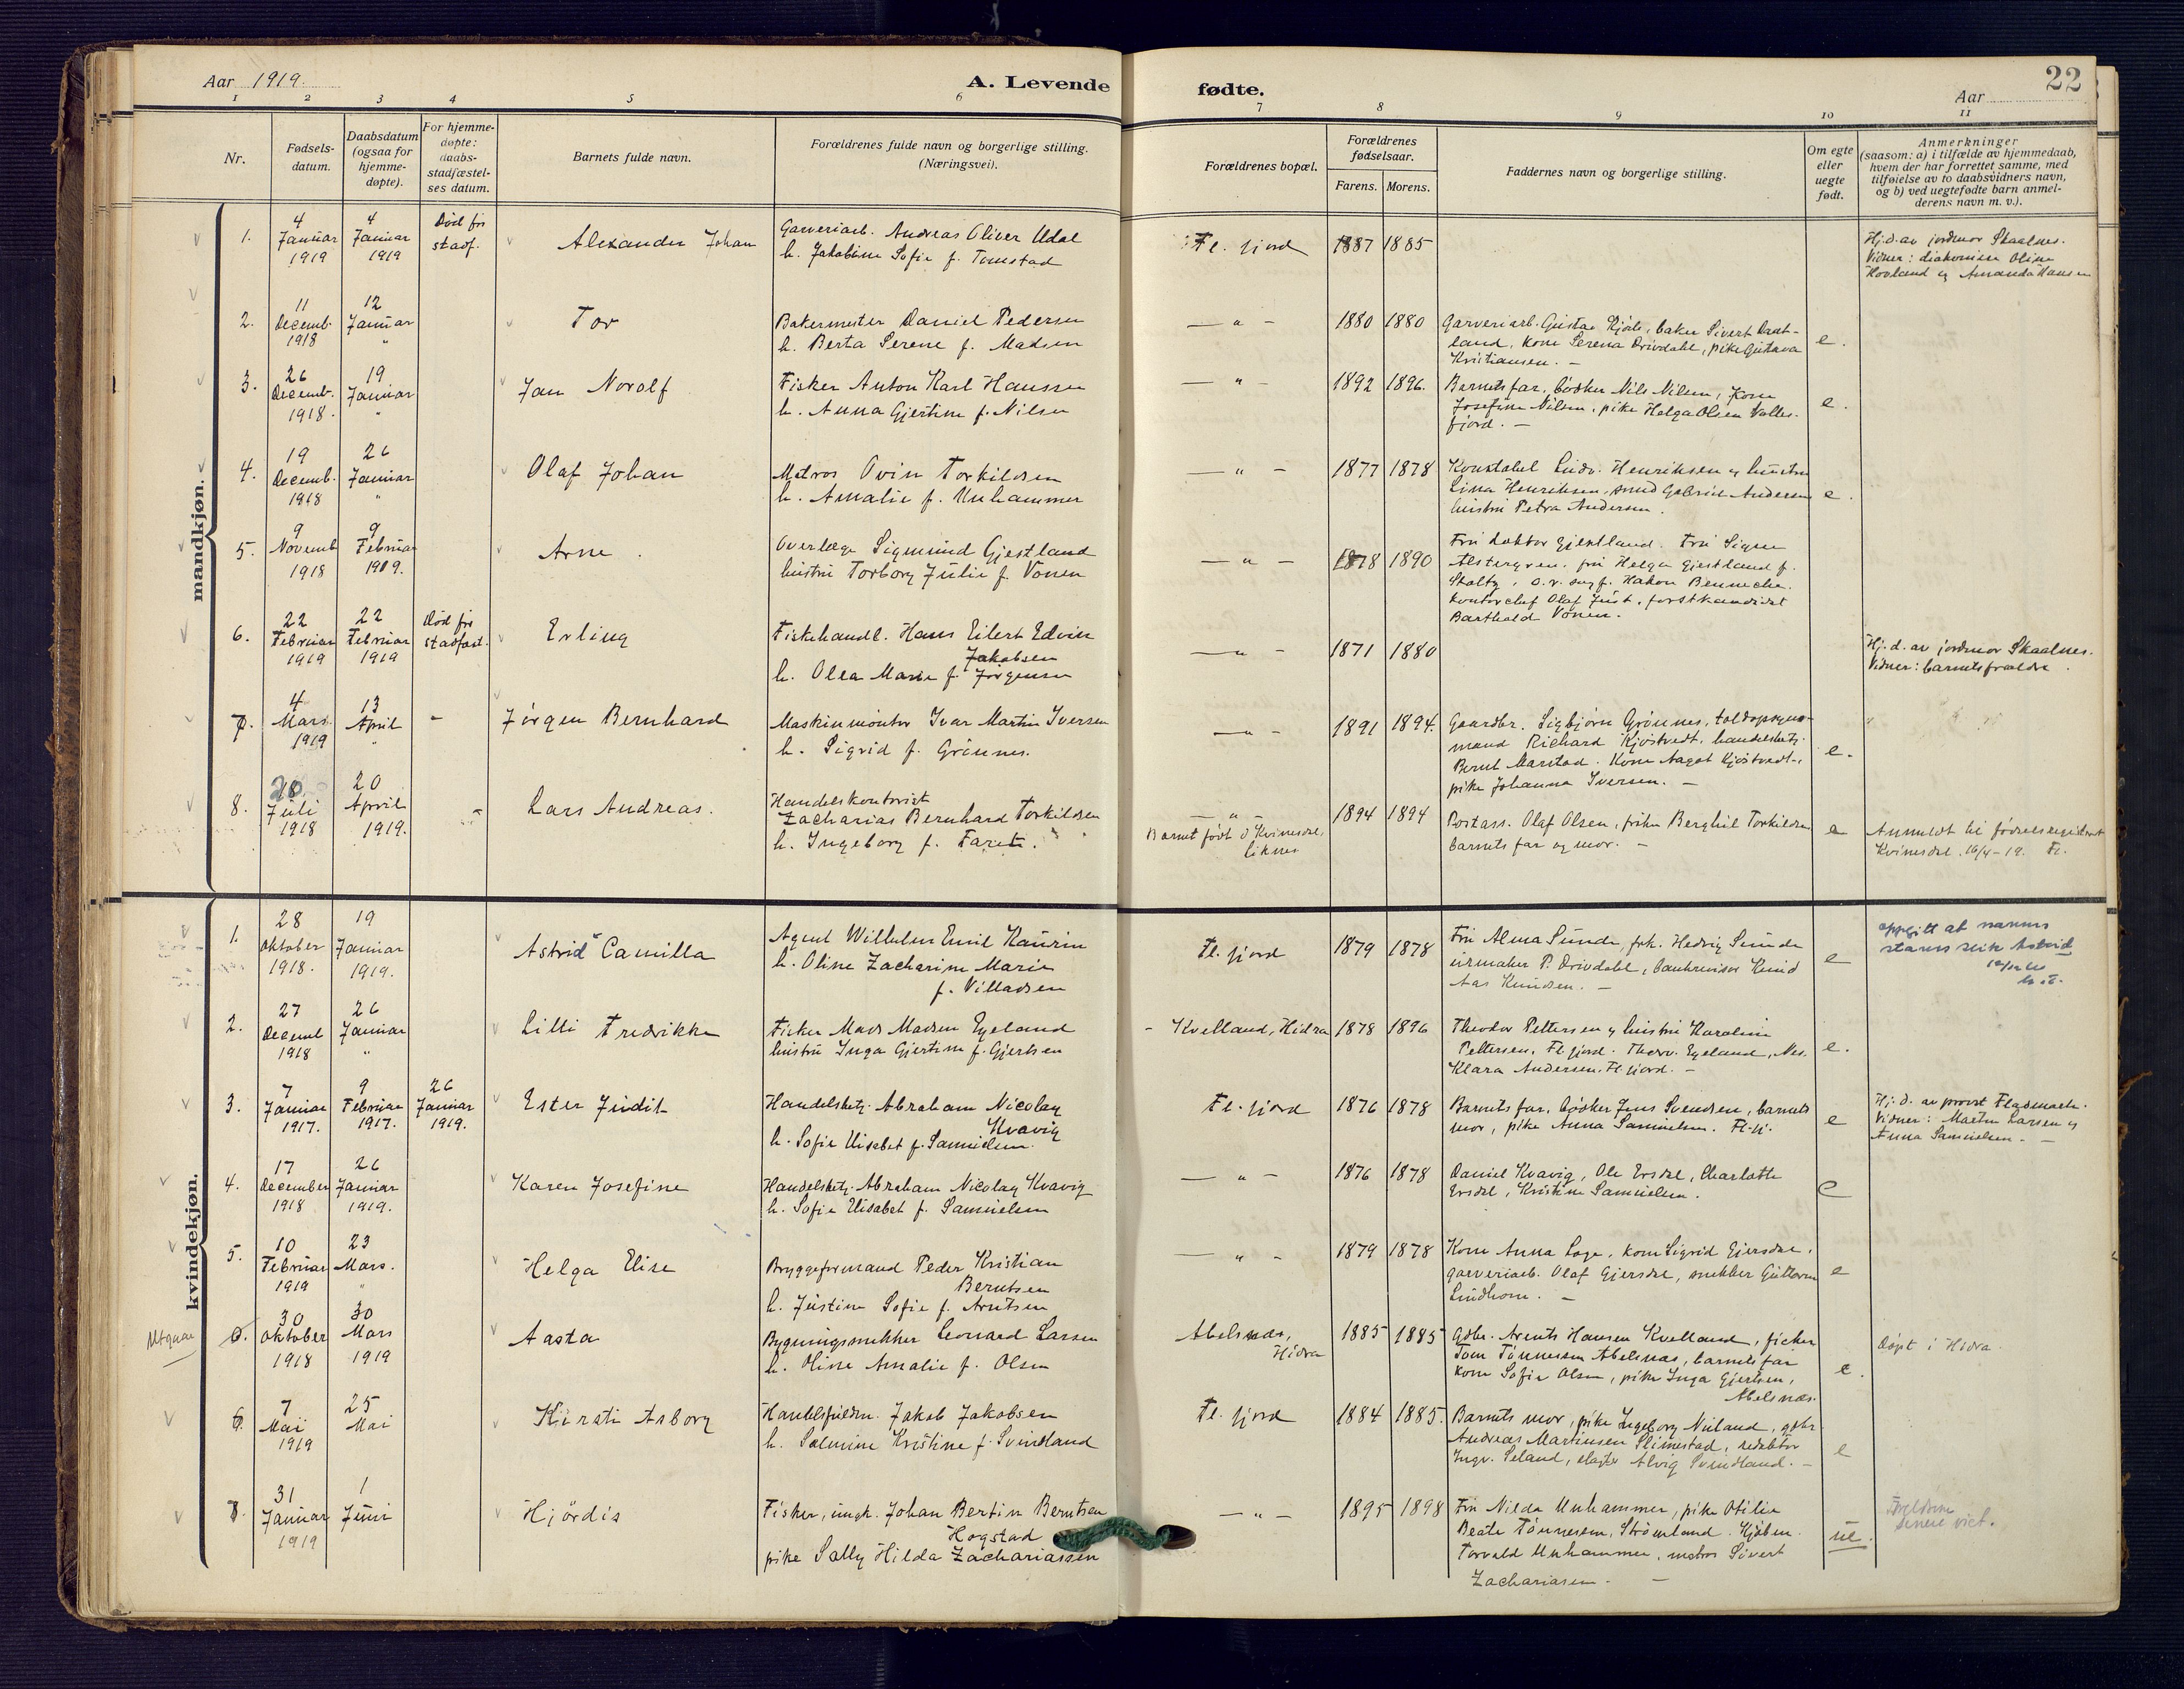 Aar 1919.
A. Levende fødte.
Aar
22
1 2 3 4 5 6 7 8 9 10 11
Nr.
Fødsels-
datum.
Daabsdatum
(ogsaa for
hjemme-
døpte).
For hjemme-
døpte:
daabs-
stadfæstel-
ses datum.
Barnets fulde navn.
Forældrenes fulde navn og borgerlige stilling.
(Næringsvei).
Forældrenes bopæl.
Forældrenes
fødselsaar.
Farens. Morens.
Faddernes navn og borgerlige stilling.
Om egte
eller
uegte
født.
Anmerkninger
(saasom: a) i tilfælde av hjemmedaab,
hvem der har forrettet samme, med
tilføielse av to daabsvidners navn,
og b) ved uegtefødte barn anmel-
derens navn m. v.).
mandkjøn.
1.
4
Januar
1919
4
Januar
1919
Død før
stadf.
Alexander Johan
Garveriarb. Andreas Oliver Udal
h. Jakobine Sofie f. Tomstad
Fl. fjord
1887 1885
Hj.d. av jordmor Skaalnes.
Vidner: diakonisse Oline
Hovland og Amanda Hansen
2.
11
Decemb.
1918
12
Januar
"
Tor
Bakermester Daniel Pedersen
h. Berta Serene f. Madsen
— " —
1880 1880
Garveriarb. Gustav Kjøls, baker Sivert Draat-
land, kone Serena Drivdahl, pike Gustava
Kristiansen. —
e.
3.
26
Decemb.
1918.
19
Januar
"
Jan Norolf
Fisker Anton Karl Hanssen
h. Anna Gjertine f. Nilsen
— " —
1892 1896.
Barnets far, bødker Nils Nilsen, kone
Josefine Nilsen, pike Helga Olsen Valles-
fjord. —
e.
4.
19
Decemb.
1918
26
Januar
"
Olaf Johan
Matros Ovin Torkildsen
h. Amalie f. Unhammer
— " —
1877 1878
Konstabel Ludv. Henriksen og hustru
Lina Henriksen, smed Gabriel Andersen
hustru Petra Andersen.
e.
5.
9
Novemb
1918
9
Februar
1919.
Arne.
Overlæge Sigmund Gjestland
hustru Torborg Julie f. Vonen
— " —
1878 1890
Fru doktor Gjestland. Fru Signe
Alstergren. fru Helga Gjestland f.
Stoltz, o.r. sagf. Hakon Bennecke.
kontorchef Olaf Just, forstkandidat
Barthold Vonen.
6.
22
Februar
1919
22
Februar
1919
Død før
stadfæst.
Erling
Fiskehandl. Hans Eilert Edvin
Jakobsen
h. Olea Marie f. Jørgensen
— " —
1871 1880
Hj.d. av jordmor Skaalnes.
Vidner: barnets forældre.
7.
4
Mars
1919
13
April
"
-
Jørgen Bernhard
Maskinmontør Ivar Martin Iversen
h. Sigrid f. Grönnes.
— " —
1891 1894.
Gaardbr. Sigbjørn Grönnes, toldopsyns-
mand Richard Kjöstvedt, handelsbetj.
Bernt Aarstad. Kone Aagot Kjöstvedt,
pike Johanna Iversen. —
e.
8.
20
Juli
1918
20
April
1919.
-
Lars Andreas.
Handelskontorist
Zacharias Bernhard Torkildsen
h. Ingeborg f. Faret.
— " —
Barnet født i Kvinesdal,
Liknes
1894 1894
Postass. Olaf Olsen, frøken Berghil Torkildsen
barnets far og mor. —
e
Anmeldt til fødselsregisteret
Kvinesdal. 16/4-19. Fl.
kvindekjøn.
1.
28
Oktober
1918.
19
Januar
1919.
Astrid Camilla
Agent Wilhelm Emil Kaurin
h. Oline Zacharine Marie
f. Villadsen
Fl. fjord
1879 1878
Fru Alma Sunde, frk. Hedvig Sunde
urmaker P. Drivdahl, bankrevisor Knud
Aas Knudsen. —
e
oppgitt at navnet
staves slik Astrid
2.
27
Decemb
1918
26
Januar
"
Lilli Fredrikke
Fisker Mads Madsen Egeland
hustru Inga Gjertine f. Gjertsen
- Kvelland, Hidra
1878 1896
Theodor Pettersen og hustru Karoline
Pettersen, Fl.fjord. Thorv. Egeland, Nes.
Klara Andersen, Fl.fjord. —
e.
3.
7
Januar
1917.
9
Februar
1917.
26
Januar
1919.
Ester Judit
Handelsbetj. Abraham Nicolay
Kvavig
h. Sofie Elisabet f. Samuelsen.
Fl. fjord
1876 1878
Barnets far, bødker Jens Svendsen, barnets
mor, pike Anna Samuelsen. Fl.fj.
e
Hj.d. av provst Fladmark.
Vidner: Marten Larsen og
Anna Samuelsen. —
4.
17
December
1918
26
Januar
1919.
Karen Josefine
Handelsbetj. Abraham Nicolay Kvavig
h. Sofie Elisabet f. Samuelsen
— " —
1876 1878
Daniel Kvavig, Ole Ersdal, Charlotte
Ersdal, Kristine Samuelsen.
e
5.
10
Februar
1919
23
Mars.
"
Helga Elise
Bryggeformand Peder Kristian
Berntsen
h. Justine Sofie f. Arntsen
— " —
1879 1878
Kone Anna Loge, kone Sigrid Gjersdal,
garveriarb. Olaf Gjersdal, snekker Guttorm
Lindhom. —
e
Utgaar
6.
30
Oktober
1918
30
Mars
1919
Aasta
Bygningssnekker Leonard Larsen
h. Oline Amalie f. Olsen
Abelsnes,
Hidra
1885 1885
Gdbr. Arents Hansen Kvelland, fisker
Tom Tönnessen Abelsnes, barnets far
kone Sofie Olsen, pike Inga Gjertsen,
Abelsnæs.
e.
Døpt i Hidra.
6.
7
Mai
1919
25
Mai
Kirsti Asborg
Handelsfuldm. Jakob Jakobsen
h. Salmine Kristine f. Svindland
Fl. fjord
1884 1885.
Barnets mor, pike Ingeborg Nuland, gdbr
Andreas Martinsen Slimestad, redaktør
Ingv. Seland, slagter Alvig Svindland. —
e
7.
31
Januar
1919
1
Juni
Hjördis
Fisker, ungk. Johan Bertin Berntsen
Hogstad
pike Sally Hilda Zachariassen
— " —
1895 1898
Fru Nilda Unhammer, pike Otilie
Beate Tönnessen, Strömland. Kjöbm.
Torvald Unhammer, matros Sivert
Zachariasen. —
ue.
Foreldrene
senere viet.